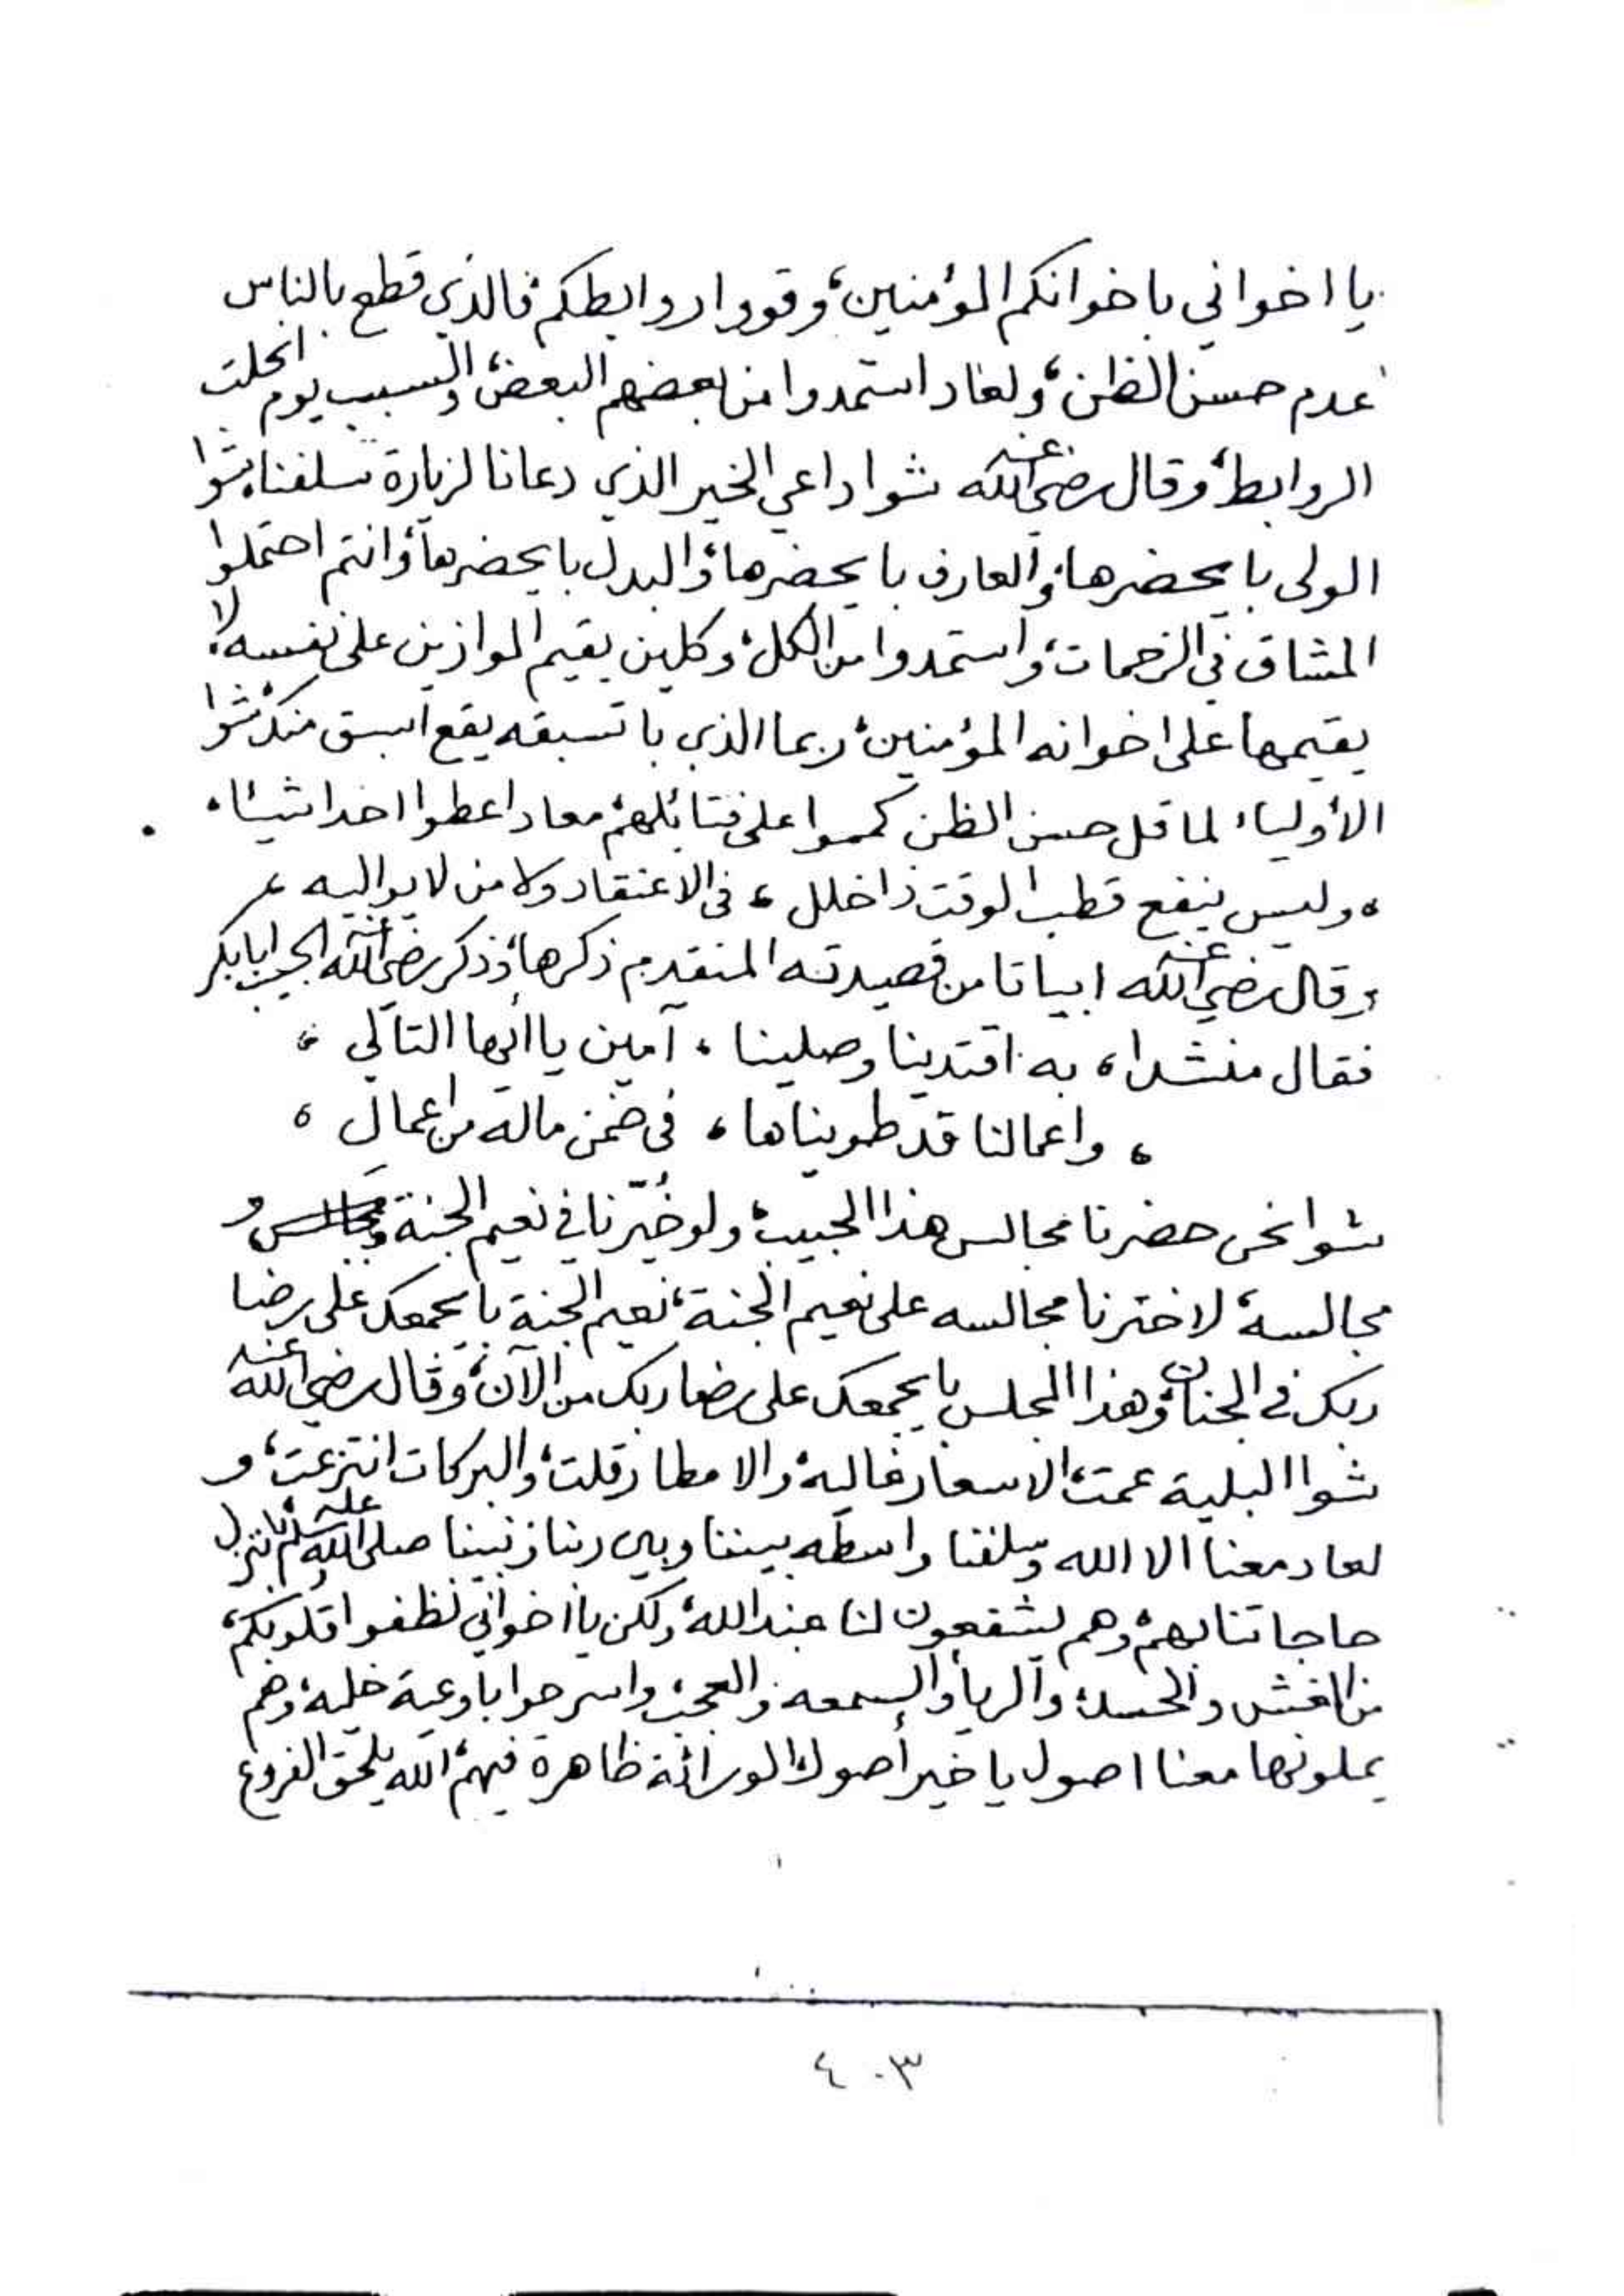 يا اخواني باخوانكم المؤمنين، وقووا روابطكم، فالذي قطع بالناس
عدم حسن الظن، ولعاد استمدوا من بعضهم البعض، والسبب يوم انحلت
الروابط، وقال رضي الله عنه شوا داعي الخير الذي دعانا لزيارة سلفنا، شوا
الولي با يحضرها، والعارف با يحضرها، والبدل با يحضرها، وانتم احتملوا
المشاق في الزحمات، واستمدوا من الكل، وكلين يقيم الموازين على نفسه، لا
يقيمها على اخوانه المؤمنين، ربما الذي با تسبقه يقع اسبق منك، شوا
الأولياء لما قل حسن الظن كمموا على فتائلهم، معاد اعطوا احدا شيئا،
، وليس ينفع قطب الوقت ذا خلل ، في الاعتقاد ولا من لا يواليه ،
وقال رضي الله عنه ابياتا من قصيدته المتقدم ذكرها، وذكر رضي الله عنه الحبيب ابابكر
فقال منشدا ، به اقتدينا وصلينا ، آمين يا ايها التالي ،
، واعمالنا قد طويناها ، في ضمن ماله من اعمال ،
شوا نحن حضرنا مجالس هذا الحبيب، ولو خُيّرنا في نعيم الجنة و
مجالسه، لاخترنا مجالسه على نعيم الجنة، نعيم الجنة با يجمعك على رضا
ربك في الجنان، وهذا المجلس با يجمعك على رضا ربك من الآن، وقال رضي الله عنه
شوا البلية عمت، الاسعار غاليه، والامطار قلت، والبركات انتزعت، و
لعاد معنا الا الله وسلفنا واسطه بيننا وبين ربنا ونبينا صلى الله عليه وسلم، ننزل
حاجاتنا بهم، وهم يشفعون لنا عند الله، ولكن يا اخواني نظفوا قلوبكم،
من الغش والحسد، والريا، والسمعه والعجب، واسرحوا باوعية خليه، وهم
يملونها معنا اصول يا خير أصول، الوراثة ظاهرة فيهم، الله يلحق الفروع
٤٠٣